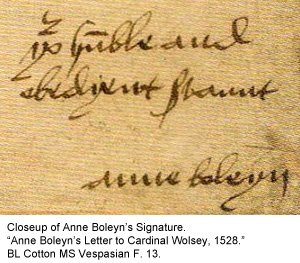 yor hūble and
obedyent svaunt
anne boleyn
Closeup of Anne Boleyn’s Signature.
“Anne Boleyn’s Letter to Cardinal Wolsey, 1528.”
BL Cotton MS Vespasian F. 13.